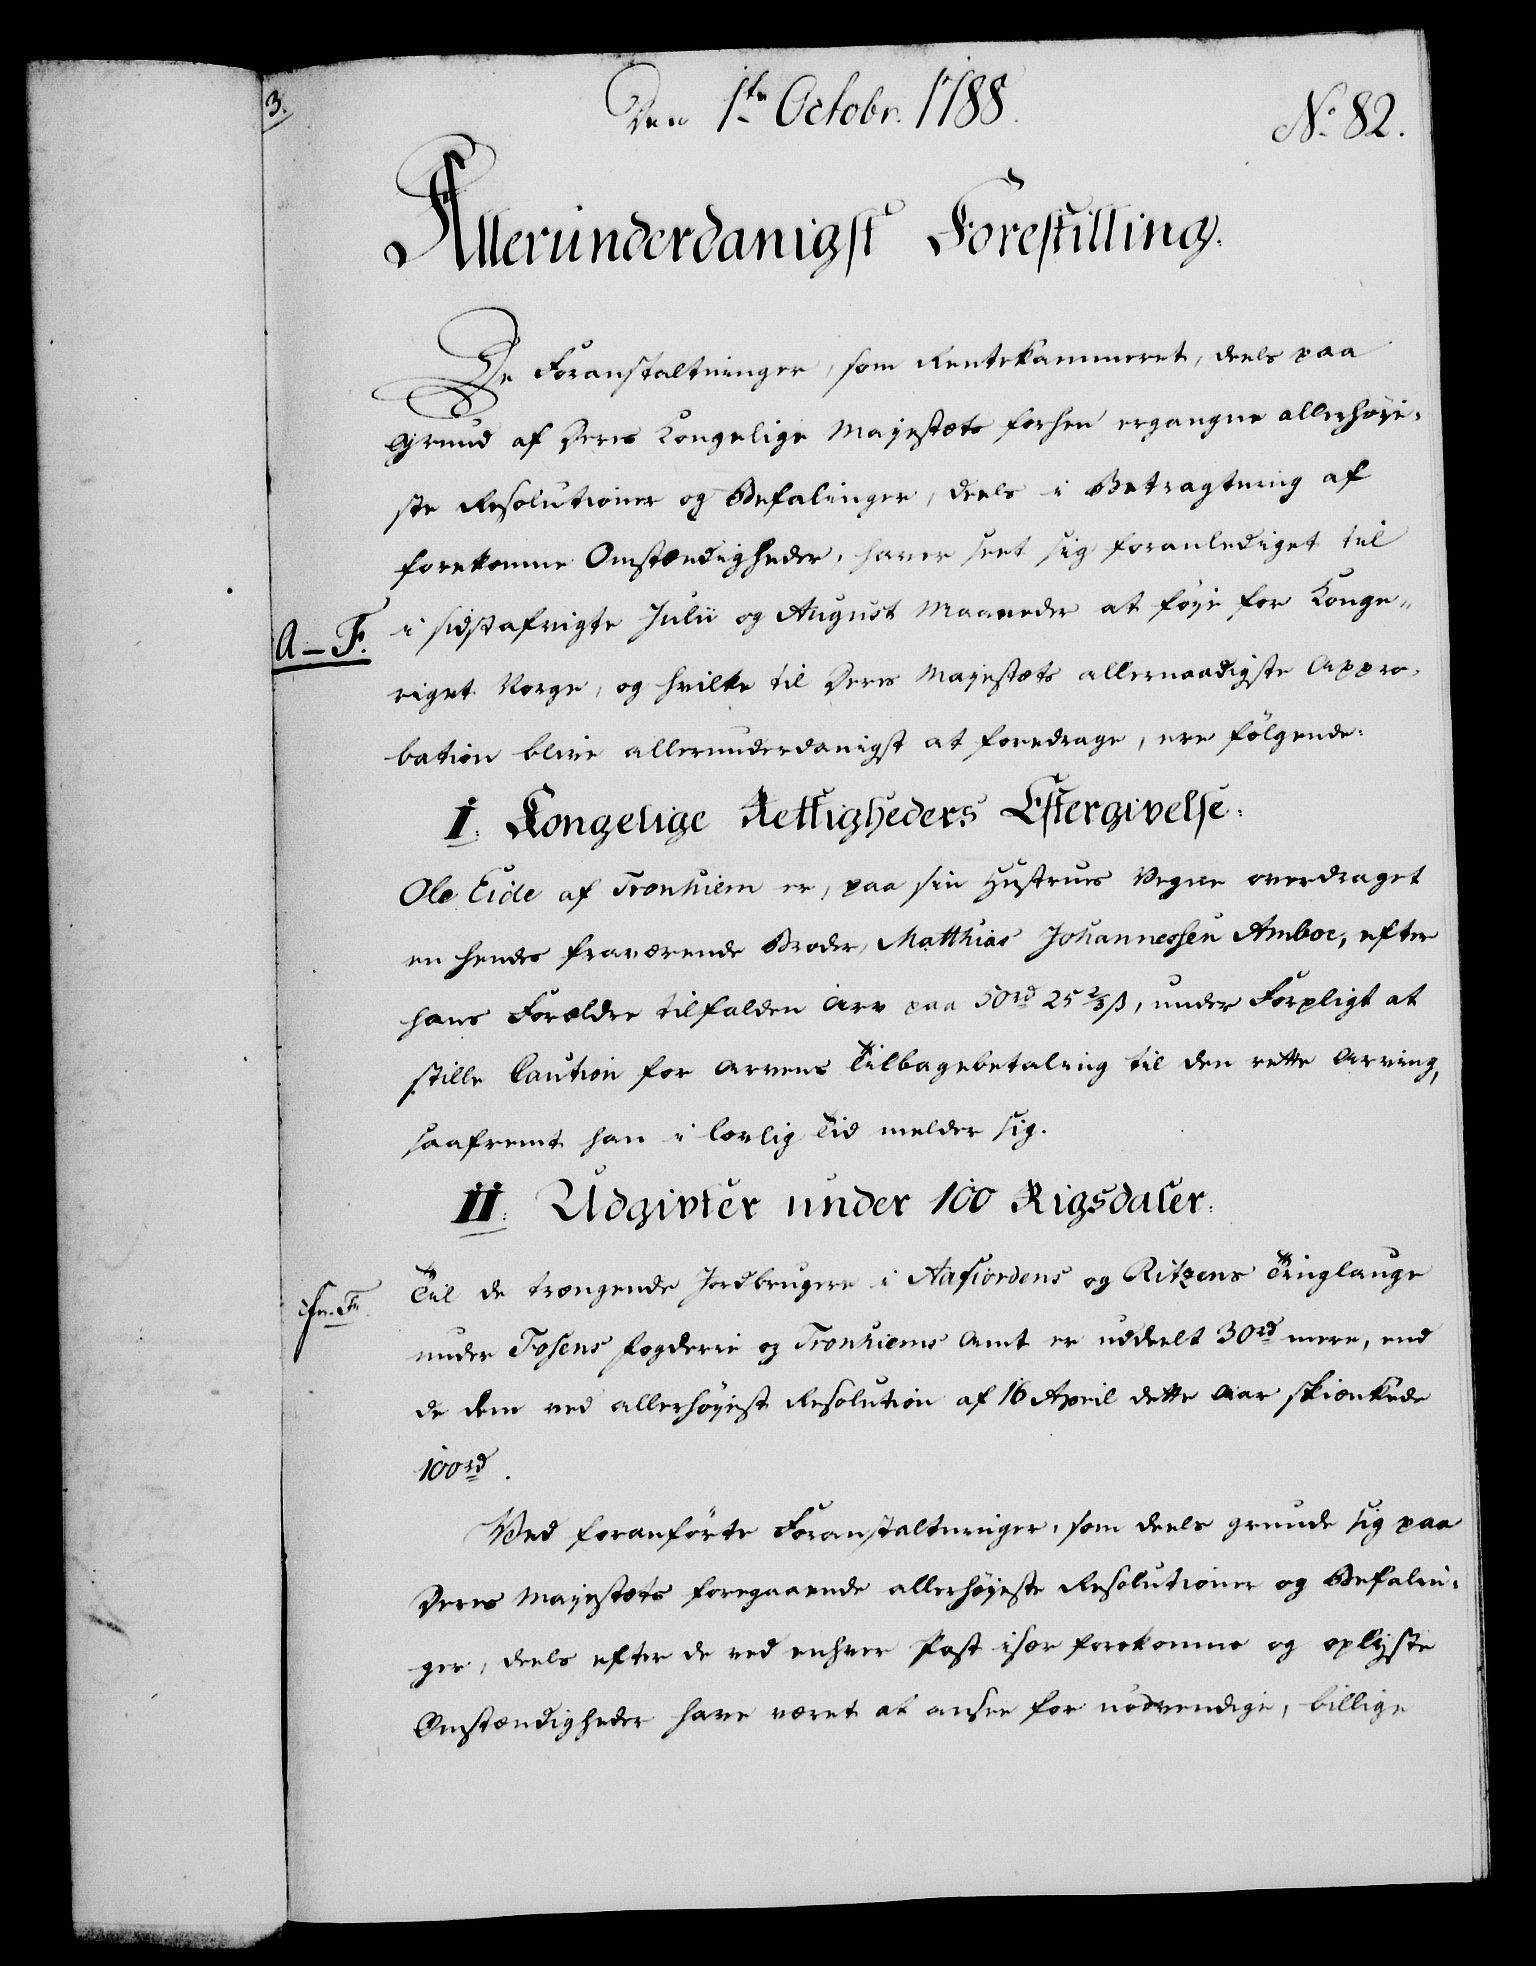 3.
Den 1ste Octobr. 1788.
No 82.
Allerunderdanigst Forestilling.
De Foranstaltninger, som Rentekammeret, deels paa
Grund af Deres Kongelige Majestæts forhen ergangne allerhøye-
ste Resolutioner og Befalinger, deels i Betragtning af
forekomne Omstændigheder, haver seet sig foranlediget til
A–F.
i sidstafvigte Julii og August Maaneder at føye for Konge-
riget Norge, og hvilke til Deres Majestæts allernaadigste Appro-
bation blive allerunderdanigst at foredrage, ere følgende:
I: Kongelige Rettigheders Eftergivelse:
Ole Eide af Tronhiem er, paa sin Hustrues Vegne overdraget
en hendes fraværende Broder, Matthias Johannessen Amboe, efter
hans Forældre tilfalden Arv paa 50rd 25 2/3 ß, under Forpligt at
stille Caution for Arvens Tilbagebetaling til den rette Arving,
saafremt han i lovlig Tid melder sig.
II: Udgivter under 100 Rigsdaler:
Til de trængende Jordbrugere i Aafiordens og Ritzens Tinglauge
under Fosens Fogderie og Tronhiems Amt er uddeelt 30rd mere, end
de dem ved allerhøyest Resolution af 16 April dette Aar skiænkede
100rd.
Ved foranførte Foranstaltninger, som deels grunde sig paa
Deres Majestæts foregaaende allerhøyeste Resolutioner og Befalin-
ger, deels efter de ved enhver Post især forekomne og oplyste
Omstændigheder have været at ansee for nødvendige, billige